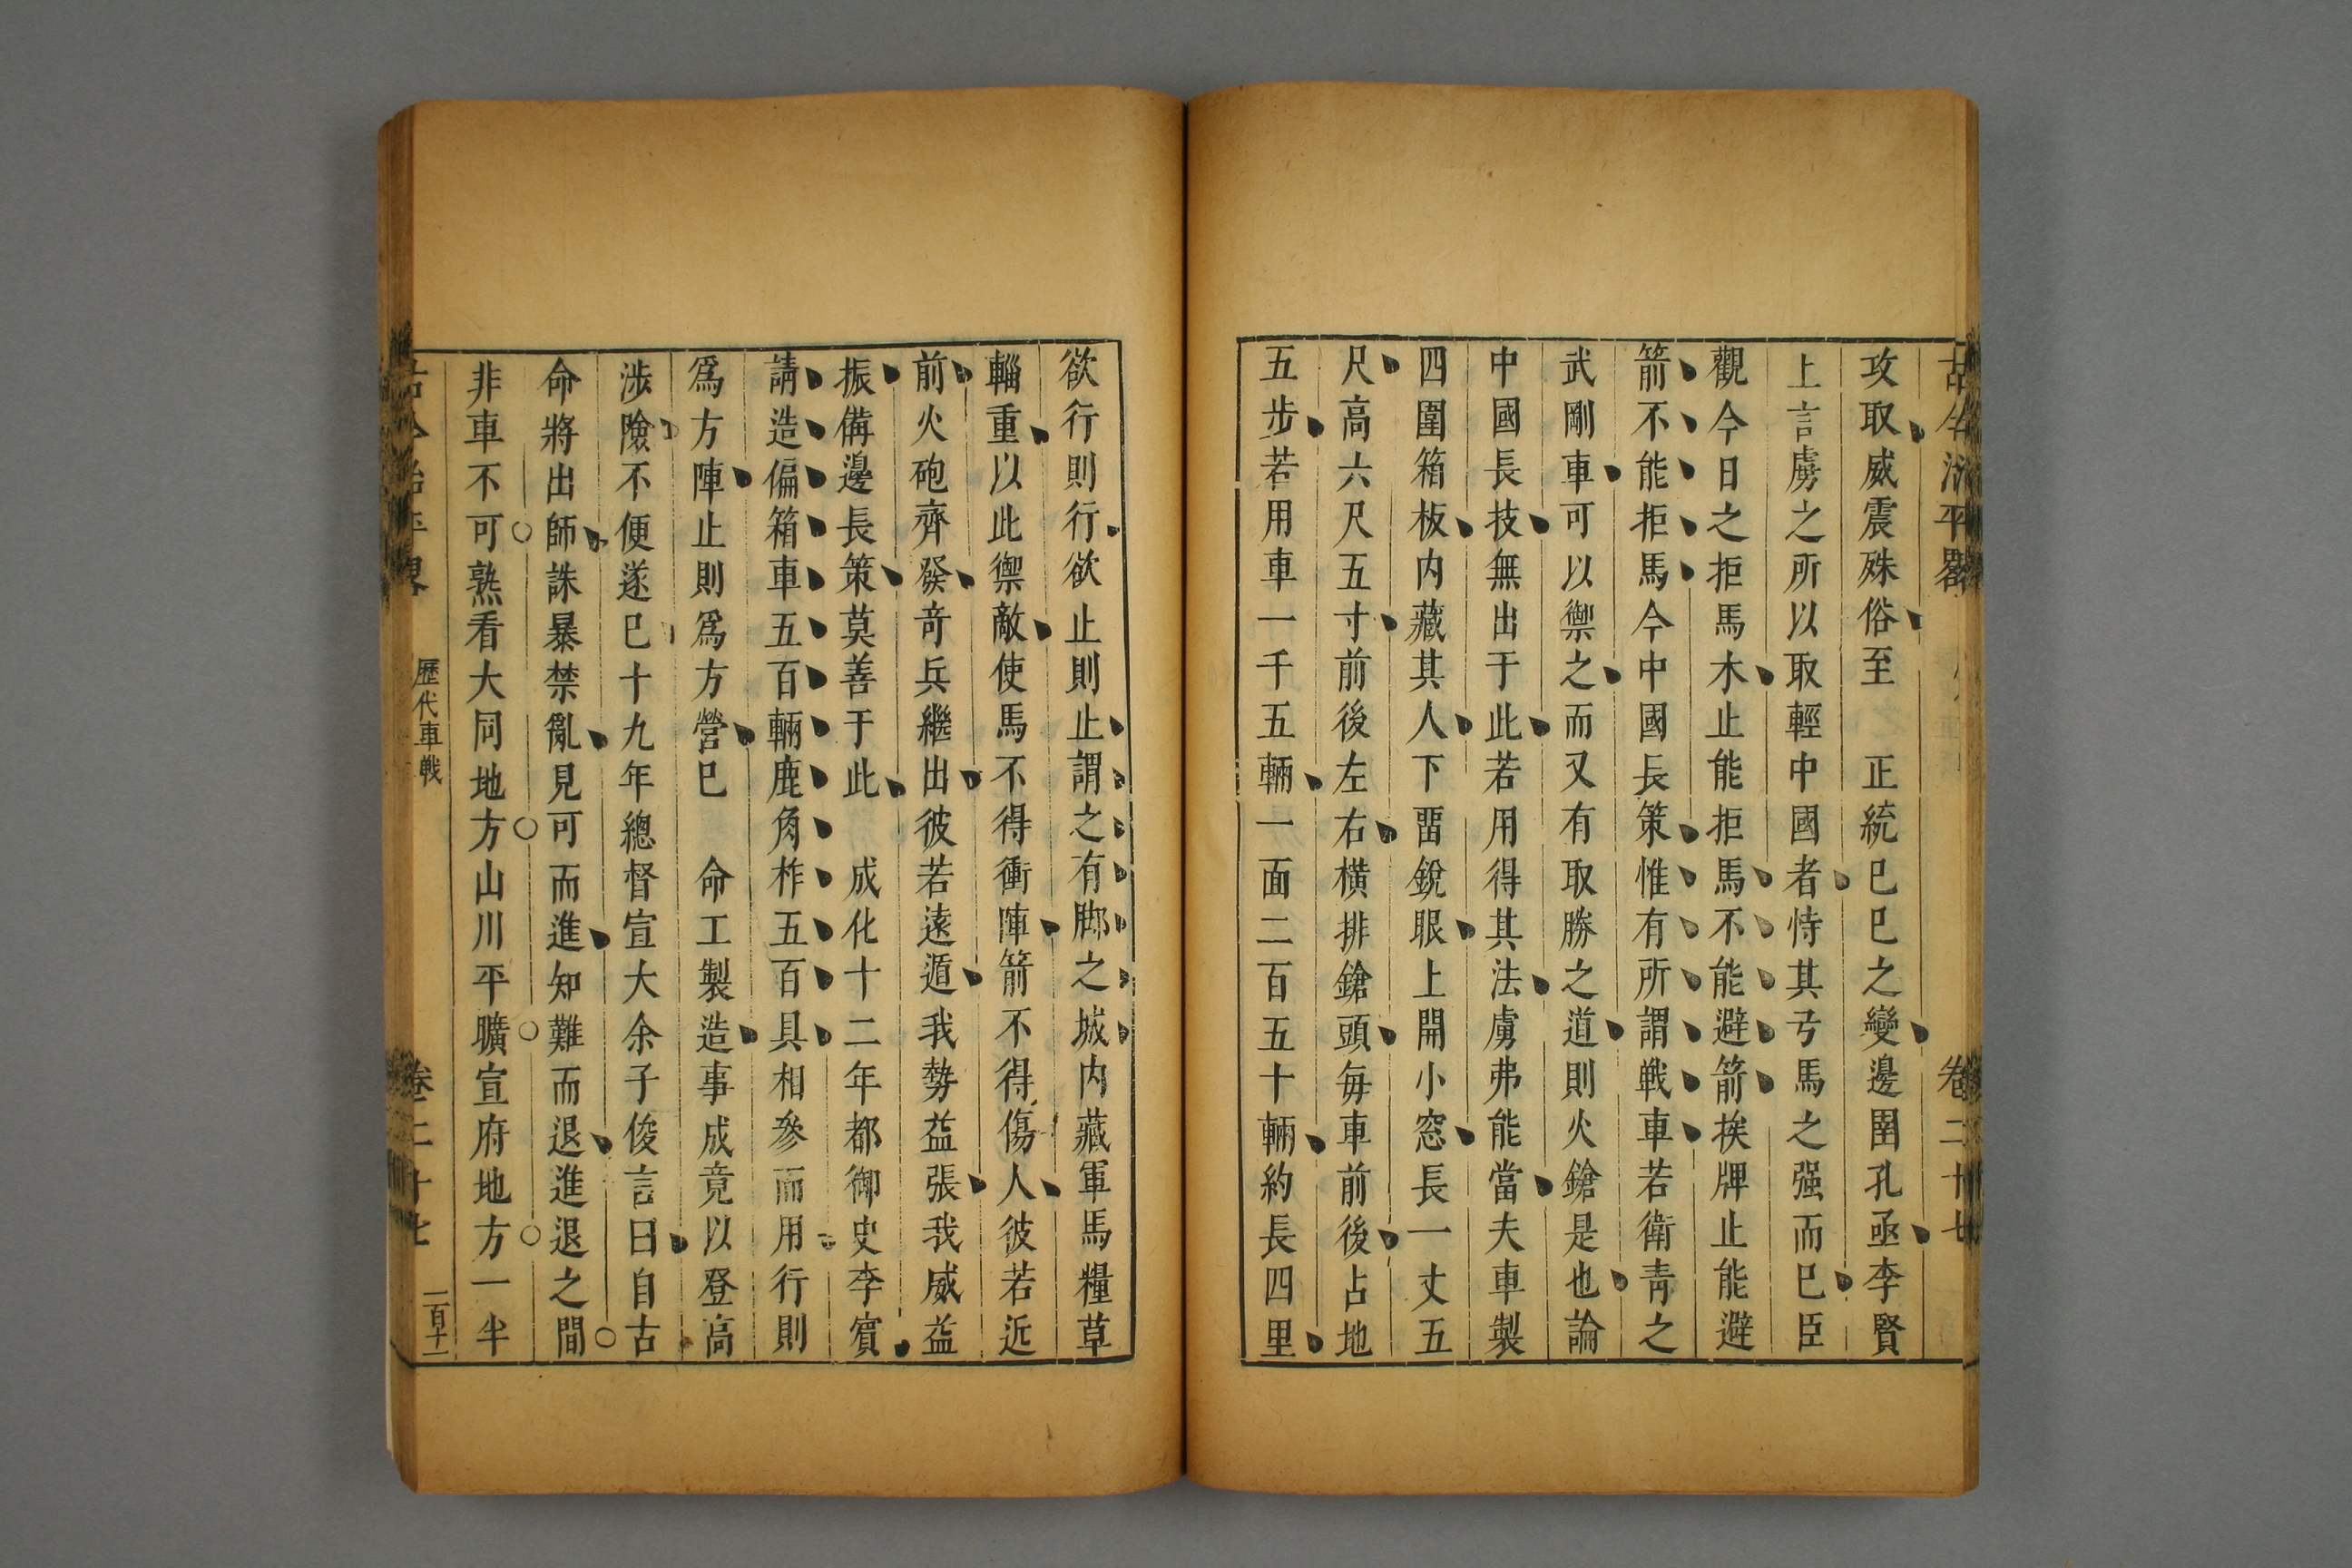 古今治平畧 卷二十七
攻取威震殊俗至 正統已巳之變邊圉孔亟李賢
上言虜之所以取輕中國者恃其弓馬之强而已臣
觀今日之拒馬木止能拒馬不能避箭挨牌止能避
箭不能拒馬今中國長策惟有所謂戰車若衛青之
武剛車可以禦之而又有取勝之道則火鎗是也論
中國長技無出于此若用得其法虜弗能當夫車製
四圍箱板内藏其人下畱銃眼上開小窓長一丈五
尺高六尺五寸前後左右橫排鎗頭每車前後占地
五步若用車一千五輛一面二百五十輛約長四里
欲行則行欲止則止謂之有脚之城内藏軍馬糧草
輜重以此禦敵使馬不得衝陣箭不得傷人彼若近
前火砲齊發竒兵繼出彼若遠遁我勢益張我威益
振備邊長策莫善于此 成化十二年都御史李賓
請造偏箱車五百輛鹿角柞五百具相參而用行則
爲方陣止則爲方營已 命工製造事成竟以登高
涉險不便遂已十九年總督宣大余子俊言曰自古
命將出師誅暴禁亂見可而進知難而退進退之間
非車不可熟看大同地方山川平曠宣府地方一半
古今治平畧 歷代車戰 卷二十七 二百十一